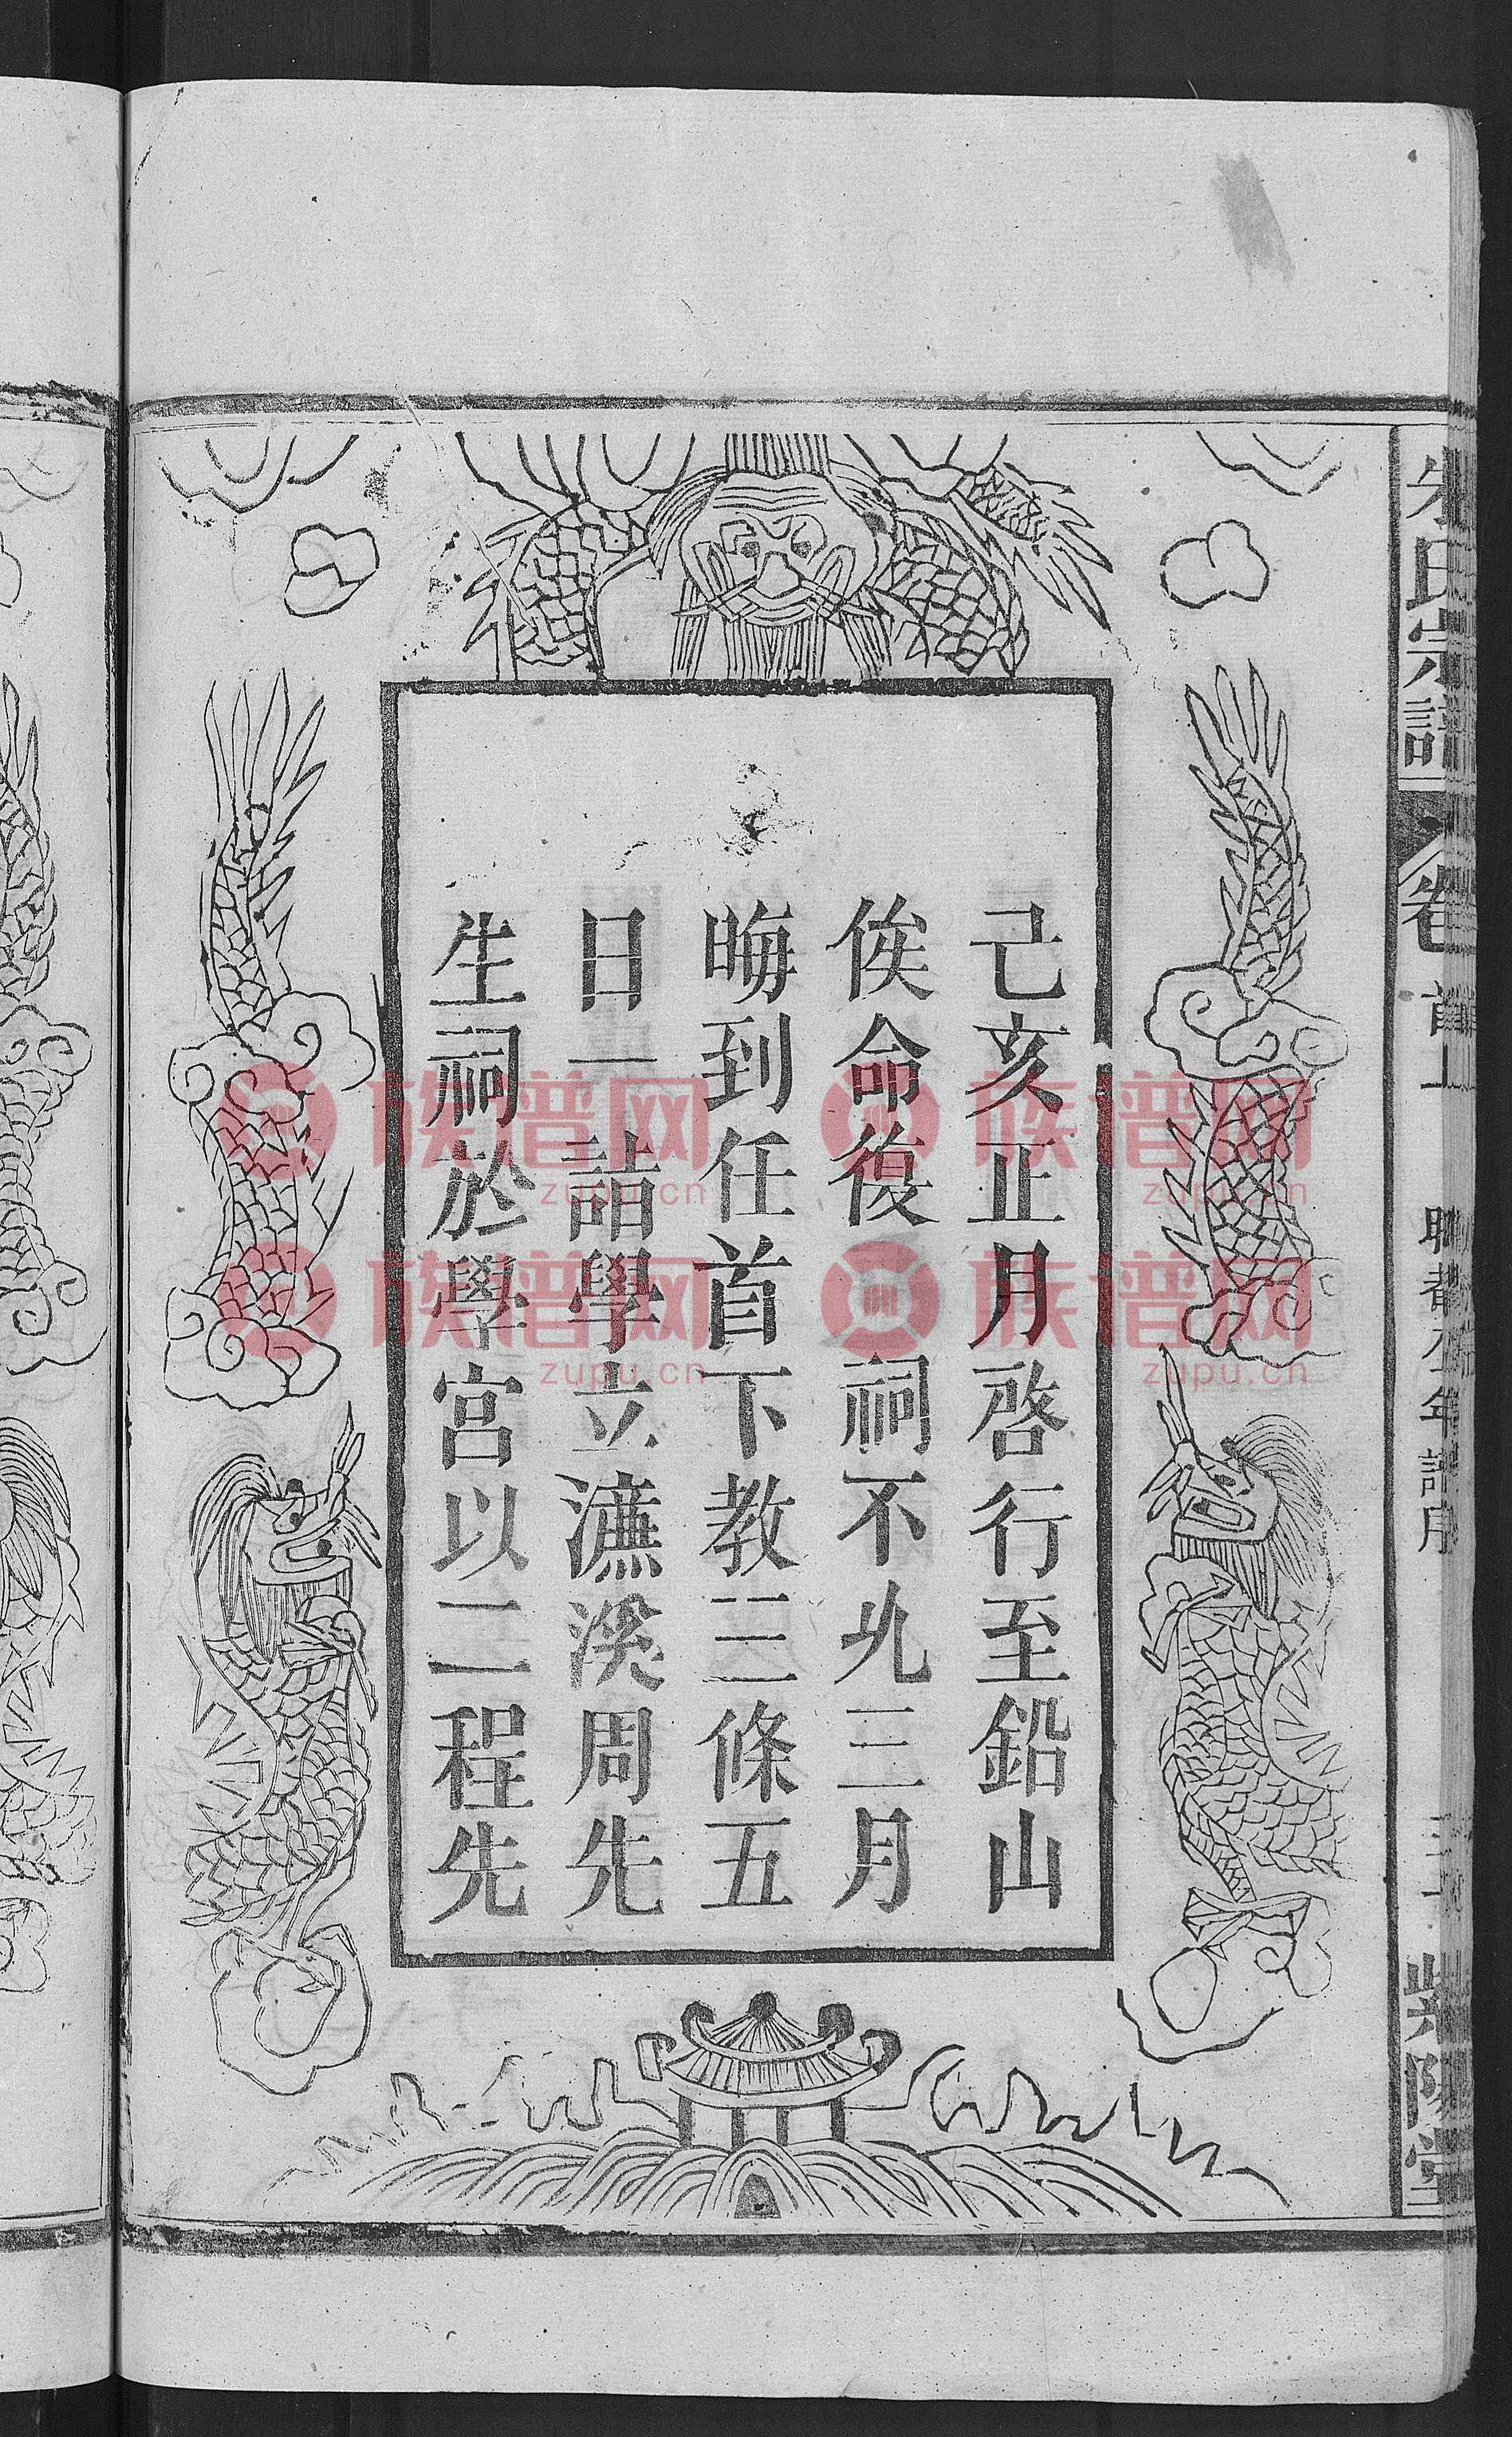 己亥正月啓行至鉛山
俟命復 祠不允三月
晦到任首下教三條五
日一詣學立濂溪周先
生祠於學宮以二程先
朱氏宗譜
卷首上
年譜序
紫陽堂
族谱网
zupu.cn
族谱网
zupu.cn
族谱网
zupu.cn
族谱网
zupu.cn